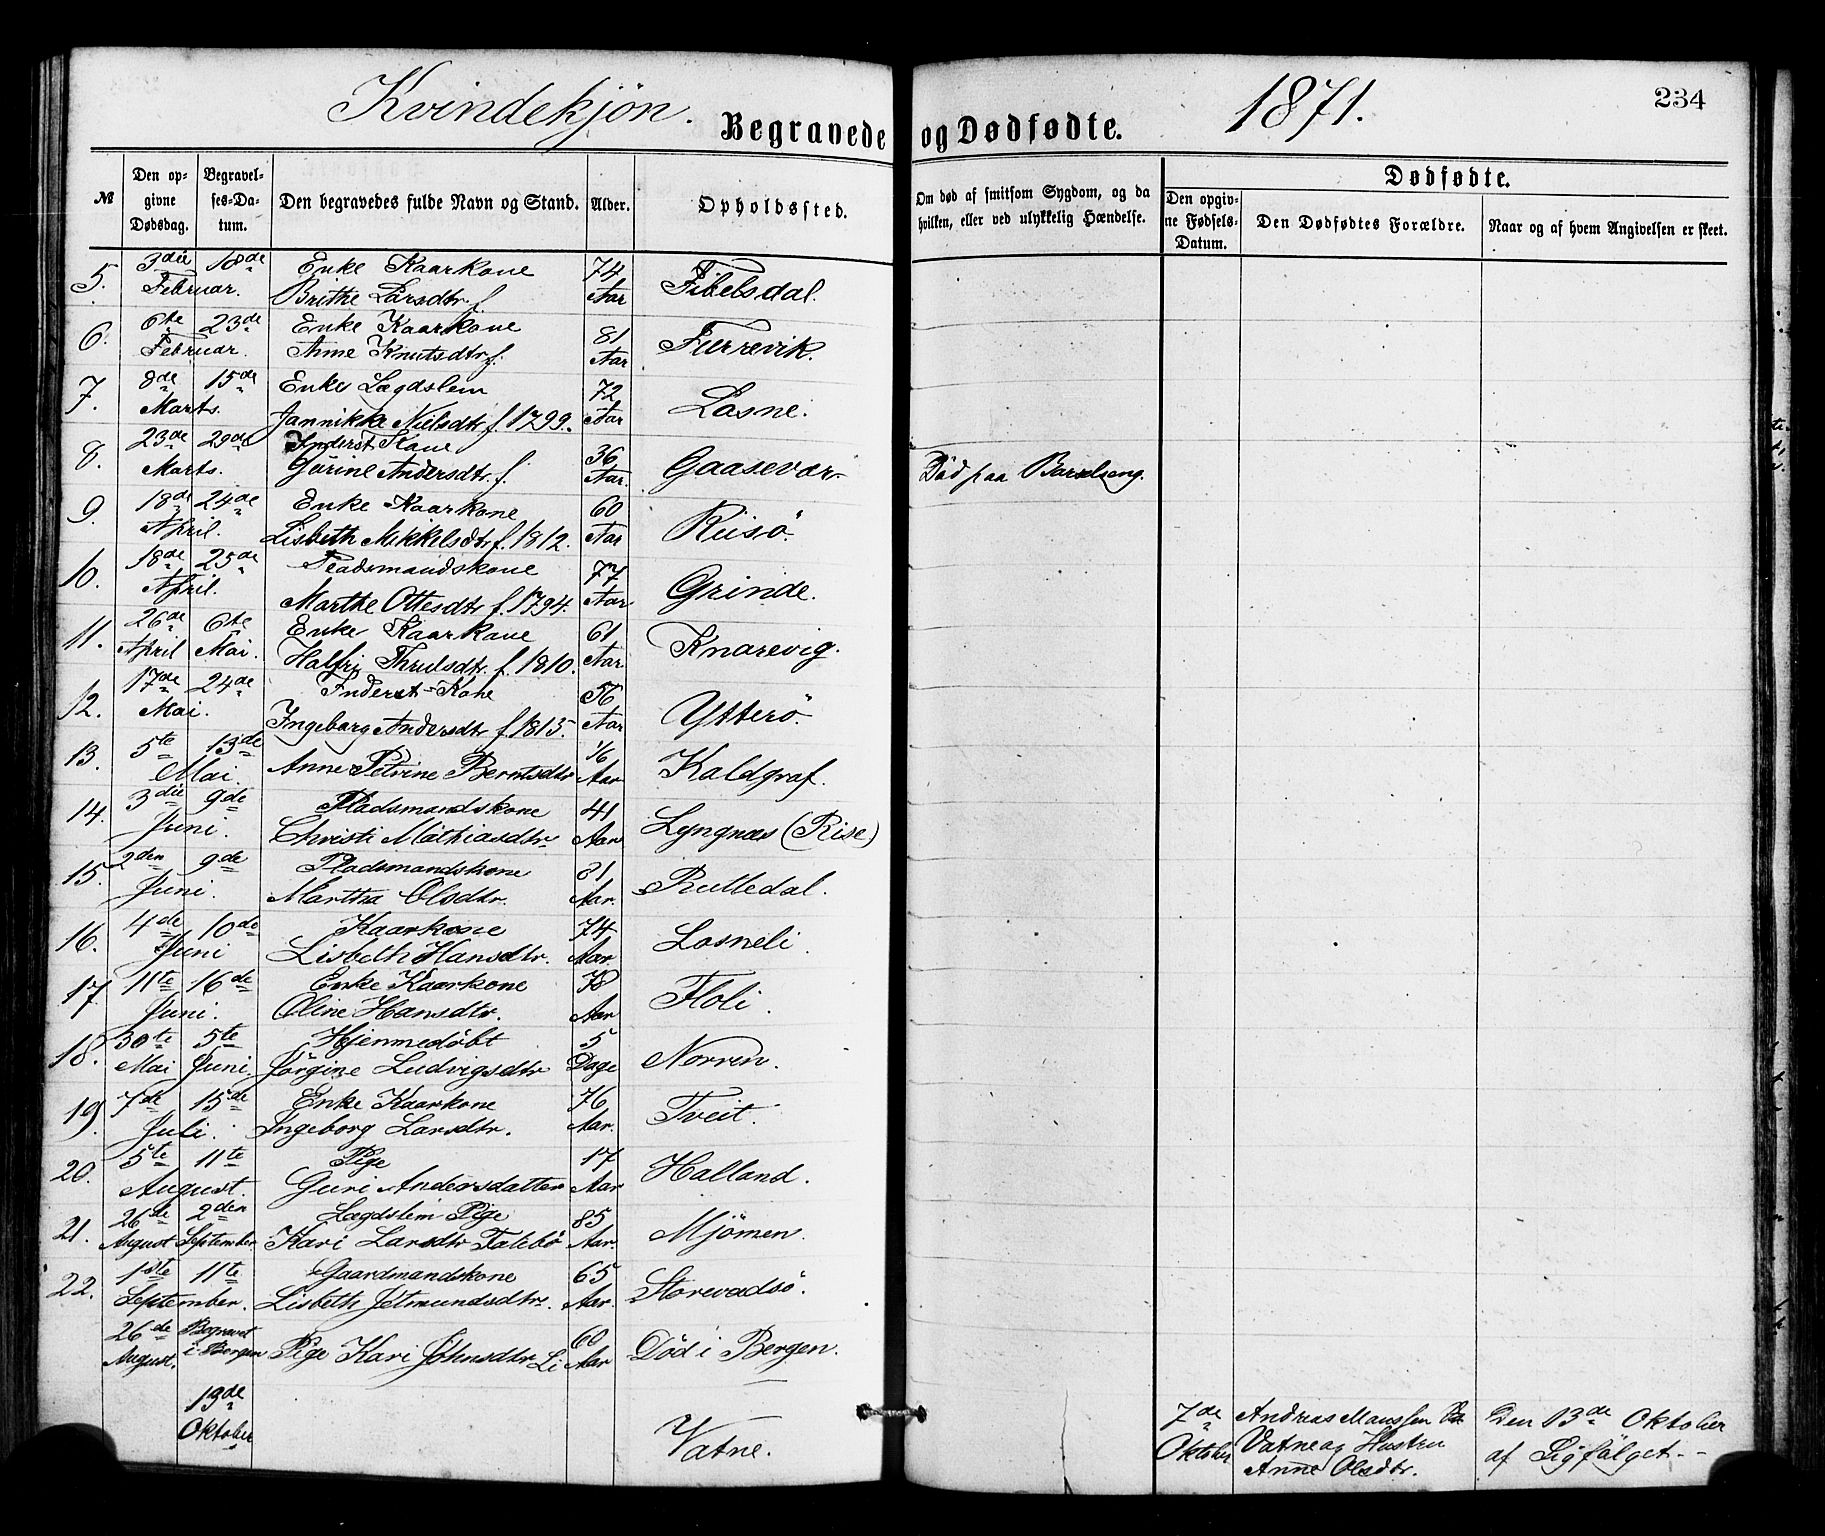 Kvindekjön. Begravede og Dødfødte. 1871. 234
№ Den op-givne Dødsdag. Begravel-ses-Da-tum. Den begravedes fulde Navn og Stand. Alder. Opholdssted. Om død af smitsom Sygdom, og da hvilken, eller ved ulykkelig Hændelse. Dødfødte.
Den opgiv-ne Fødsels-Datum. Den Dødfødtes Forældre. Naar og af hvem Angivelsen er skeet.
5. 3die 18de Enke Kaarkone 74
Februar. Brithe Larsdtr. f. Aar Fibelsdal.
6. 6te 23de Enke Kaarkone 81
Februar. Anne Knutsdtr f. Aar Furrevik.
7. 8de 15de Enke Lægdslem 72
Marts. Jannikke Nielsdtr. f. 1799. Aar Losne.
8. 23de 29de Inderst Kone 36
Marts. Gurine Andersdtr. f. Aar. Gaasevær Død paa Barselseng.
9. 18de 24de Enke Kaarkone 60
April. Lisbeth Mikkelsdtr f. 1812. Aar Risö.
10. 18de 25de Pladsmandskone 77
April. Marthe Ottesdtr f. 1794. Aar Grinde.
11. 26de 6te Enke Kaarkone 61
April Mai. Halfri Thrulsdtr. f. 1810. Aar. Knarevig.
12. 17de 24de Inderst-Kone 56
Mai. Ingeborg Andersdtr f. 1815. Aar Ytterö.
13. 5te 13de Anne Petrine Berntsdtr
Mai. Aar Kaldgraf.
14. 3die 9de Pladsmandskone 41
Juni. Christi Mathiasdtr Aar Lyngnæs (Rise)
15. 2den 9de Pladsmandskone 81
Juni. Martha Olsdtr. Aar. Rutledal.
16. 4de 10de Kaarkone 74
Juni Lisbeth Hansdtr. Aar. Losneli
17. 11te 16de Enke Kaarkone 78
Juni. Oline Hansdtr. Aar Floli.
18. 30te 5te Hjemmedöbt 5
Mai Juni. Jörgine Ludvigsdtr Dage Norren.
19. 7de 15de Enke Kaarkone 76
Juli. Ingeborg Larsdtr. Aar. Tveit.
20. 5te 11te Pige 17
August. Guri Andersdatter Aar Halland.
21. 26de 2den Lægdslem Pige 85
August September Kari Larsdtr Talebö Aar. Mjömen.
22. 1ste 11te Gaardmandskone 65
September. Lisbeth Jetmundsdtr. Aar. Storevadsö.
26de Begravet 60
August. i Bergen Pige Kari Johnsdtr Li Aar Död i Bergen.
13de 7de Andreas Monssen Den 13de Oktober
Oktober Vatne. Oktober Vatne og Hustru af Ligfölget.
Anne Olsdtr.